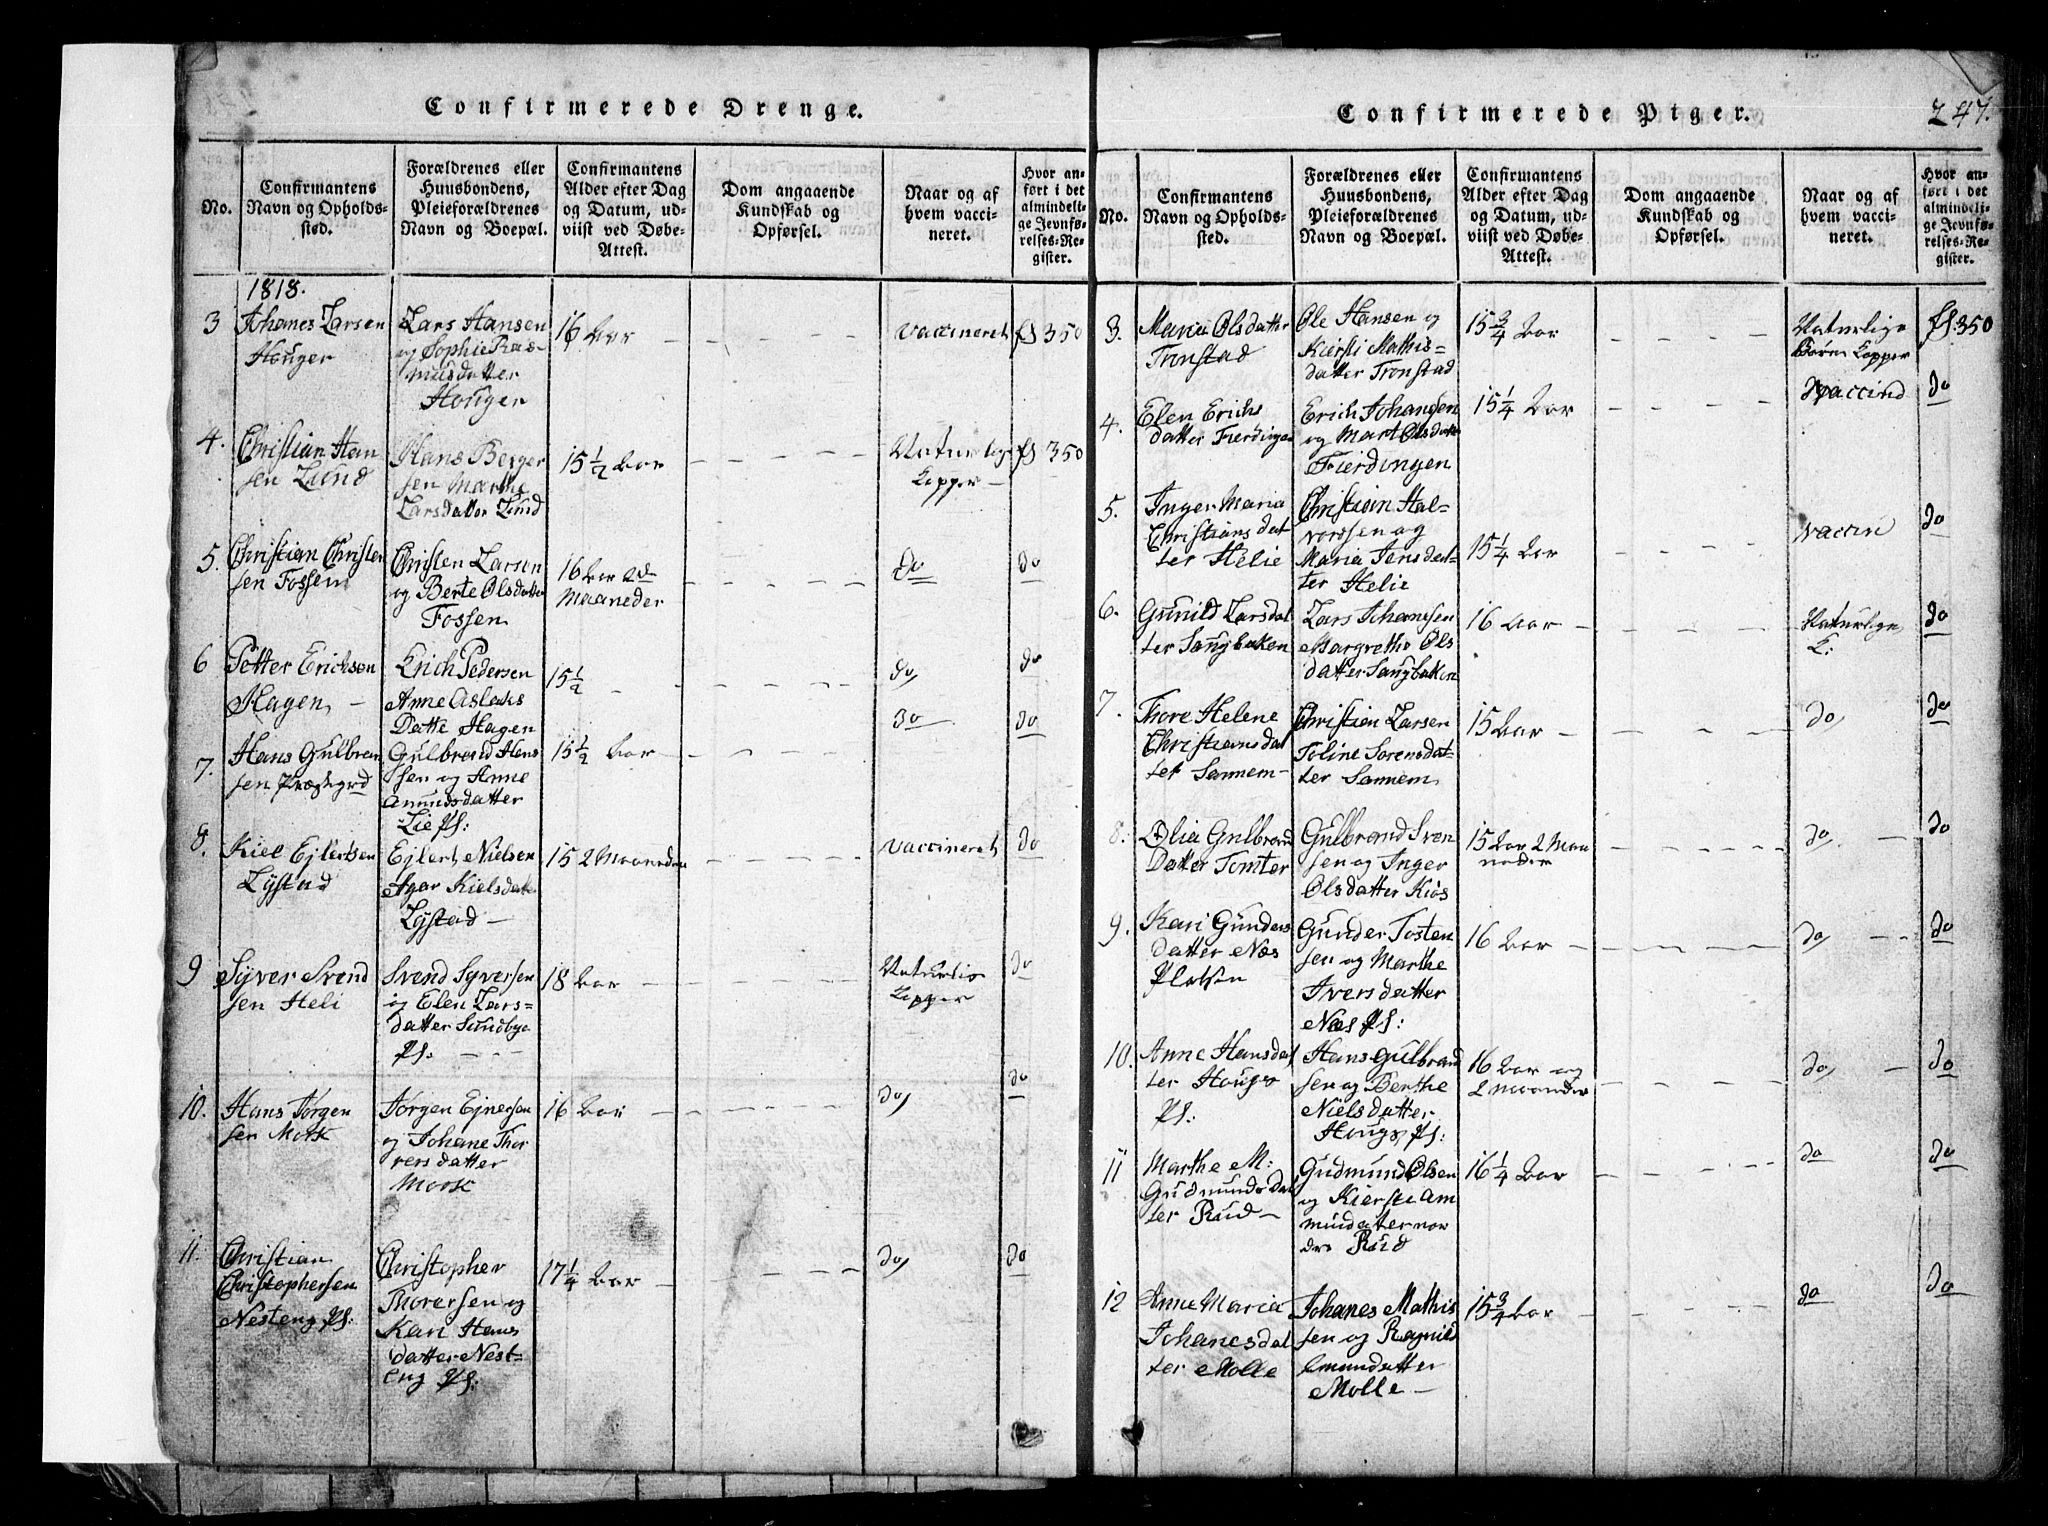 Confirmerede Drenge.
No.
Confirmantens
Navn og Opholds-
sted.
Forældrenes eller
Huusbondens,
Pleieforældrenes
Navn og Boepæl.
Confirmantens
Alder efter Dag
og Datum, ud-
viist ved Døbe-
Attest.
Dom angaaende
Kundskab og
Opførsel.
Naar og af
hvem vacci-
neret.
Hvor an-
ført i det
almindeli-
ge Jevnfø-
relses-Re-
gister.
1818.
3
Johanes Larsen
Houger
Lars Hansen
og Sophie Ras-
musdatter
Houger
16 Aar
vaccineret
fl 350
4.
Christian Han
sen Lund
Hans Berger
sen Marthe
Larsdatter Lund
15 1/2 Aar
Naturlige
Kopper
fl 350
5.
Christian Christen
sen Fossen
Christen Larsen
og Berte Olsdatter
Fossen
16 Aar 2
Maaneder
do
do
6
Petter Erichsen
Hagen
Erich Pedersen
Anne Aslaks
Datte Hagen
15 1/2
do
do
7.
Hans Gulbran
sen Præstegrd
Gulbrand Hans
sen og Anne
Amundsdatter
Lie Pl:
15 1/2 Aar
do
do
8.
Kiel Ejlertsen
Lystad
Ejlert Nielsen
Agar Kielsdatte
Lystad
15 2 Maaneder
vaccineret
do
9
Syver Svend
sen Heli
Svend Syversen
og Elen Lars-
datter Sundbye
Pl:
18 Aar
Naturlig
Kopper
do
10.
Hans Jørgen
sen Mork
Jørgen Ejnersen
og Johane Thor
versdatter
Moosk
16 Aar
do
do
11.
Christian
Christophersen
Nesteng Pl:
Christopher
Thorersen og
Kari Hans
datter Nest-
eng Pl:
17 1/4 Aar
do
do
Confirmerede Piger.
247.
No.
Confirmantens
Navn og Opholds-
sted.
Forældrenes eller
Huusbondens,
Pleieforældrenes
Navn og Boepæl.
Confirmantens
Alder efter Dag
og Datum, ud-
viist ved Døbe-
Attest.
Dom angaaende
Kundskab og
Opførsel.
Naar og af
hvem vacci-
neret.
Hvor an-
ført i det
almindeli-
ge Jevnfø-
relses-Re-
gister.
3.
Maria Olsdatter
Tronstad
Ole Hansen og
Kiersti Mathis-
datter Tronstad
15 3/4 Aar
Naturlige
Børne Kopper
fl. 350
4.
Elen Erichs
datter Fierdingen
Erich Johansen
og Mart Olsdatte
Fierdingen
15 1/4 Aar
vaccind
do
5.
Inger Maria
Christians dat
ter Helie
Christian Hal-
vorssen og
Maria Jensdat-
ter Helie
15 1/4 Aar
vaccin
do
6.
Gunild Larsdat
ter Saugbaken
Lars Johansen
Margrethe Ols
datter Saugbaken
16 Aar
Naturlige
K:
do
7.
Thore Helene
Christiansdat
ter Sannem
Christian Larsen
Toline Sørensdat-
ter Sannem
15 Aar
do
do
8.
Olia Gulbrand
Datter Tomter
Gulbrand Sven
sen og Inger
Olsdatter Kiøs
15 Aar 2 Maa
neder
do
do
9.
Kari Gunders
datter Næs
Platsen
Gunder Tosten
sen og Marthe
Iversdatter
Næs Pl:
16 Aar
do
do
10.
Anne Hansdat
ter Hougs
Pl:
Hans Gulbrand
sen og Berthe
Nielsdatter
Hougs Pl:
16 Aar og
2 Maaneder
do
do
11
Marthe M:
Gudmunds Dat
ter Rud
Gudmund Olsen
og Kiersti Am
mundater nor
dre Rud
16 1/4 Aar
do
do
12
Anne Maria
Johanesdat
ter Molle
Johanes Mathis
sen og Ragnild
Emundatter
Molle
15 3/4 Aar
do
do